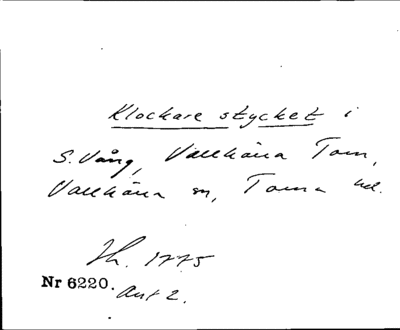 Klockare stycket i
S. Vång, Vallkärra Torn,
Vallkärra sn, Torna hd.
Jh. 1775
Nr 6220. Akt 2.